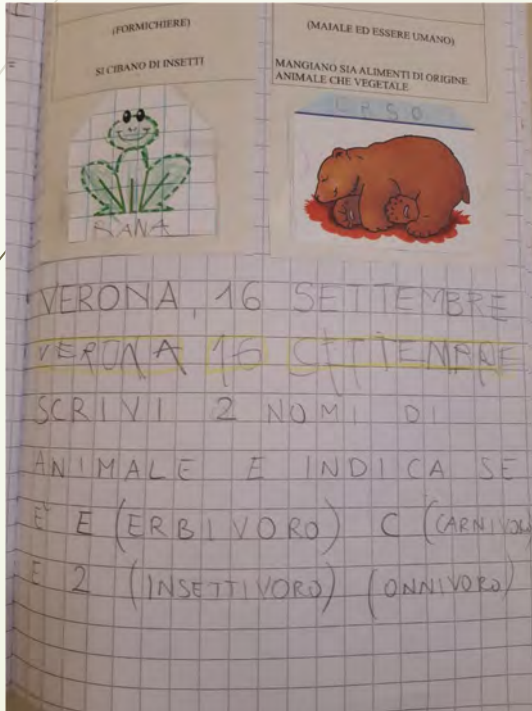 (FORMICHIERE)
SI CIBANO DI INSETTI
(MAIALE ED ESSERE UMANO)
MANGIANO SIA ALIMENTI DI ORIGINE
ANIMALE CHE VEGETALE
RANA
ORSO
VERONA, 16 SETTEMBRE
VERONA 16
SCRIVI 2 NOMI DI
ANIMALE E INDICA SE
E' E (ERBIVORO) C (CARNIVORO)
E 2 (INSETTIVORO) (ONNIVORO)